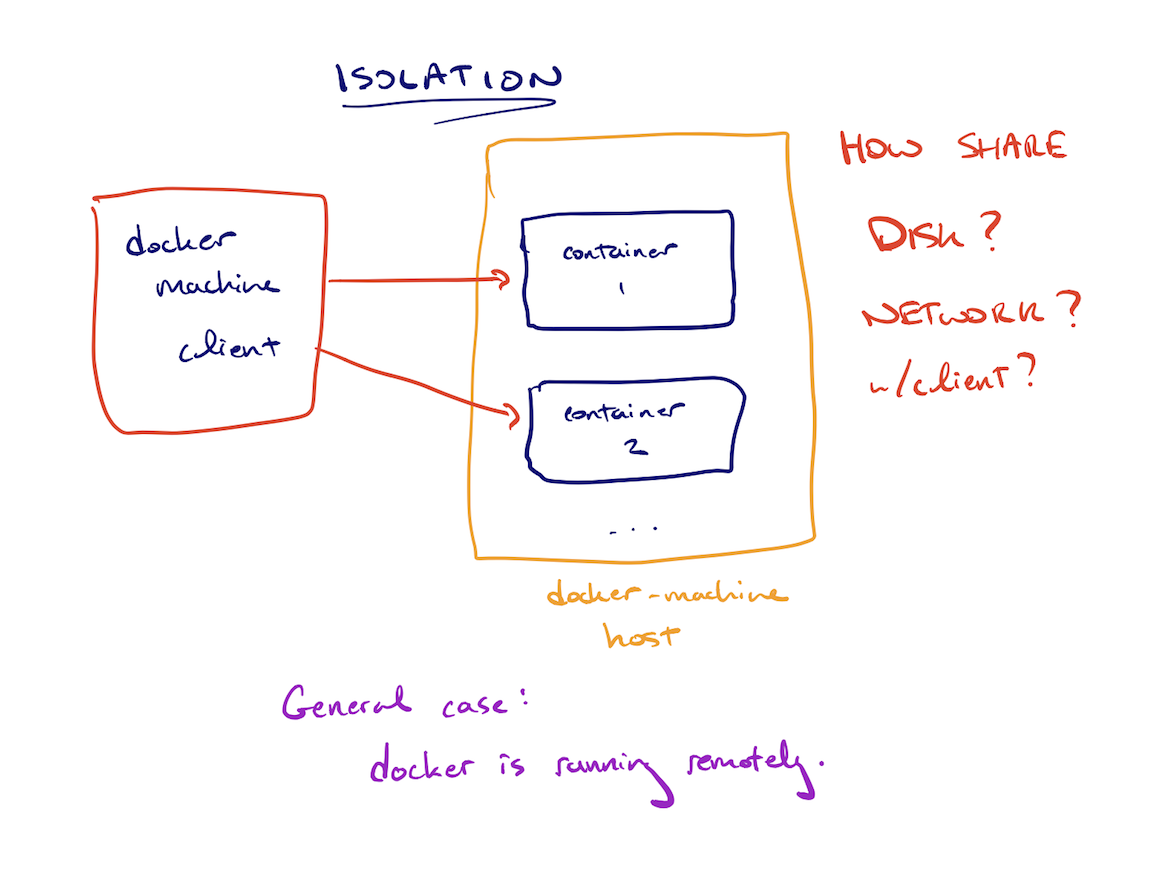 ISOLATION
docker
machine
client
container
1
container
2
...
docker-machine
host
HOW SHARE
DISK?
NETWORK?
w/client?
General case:
docker is running remotely.